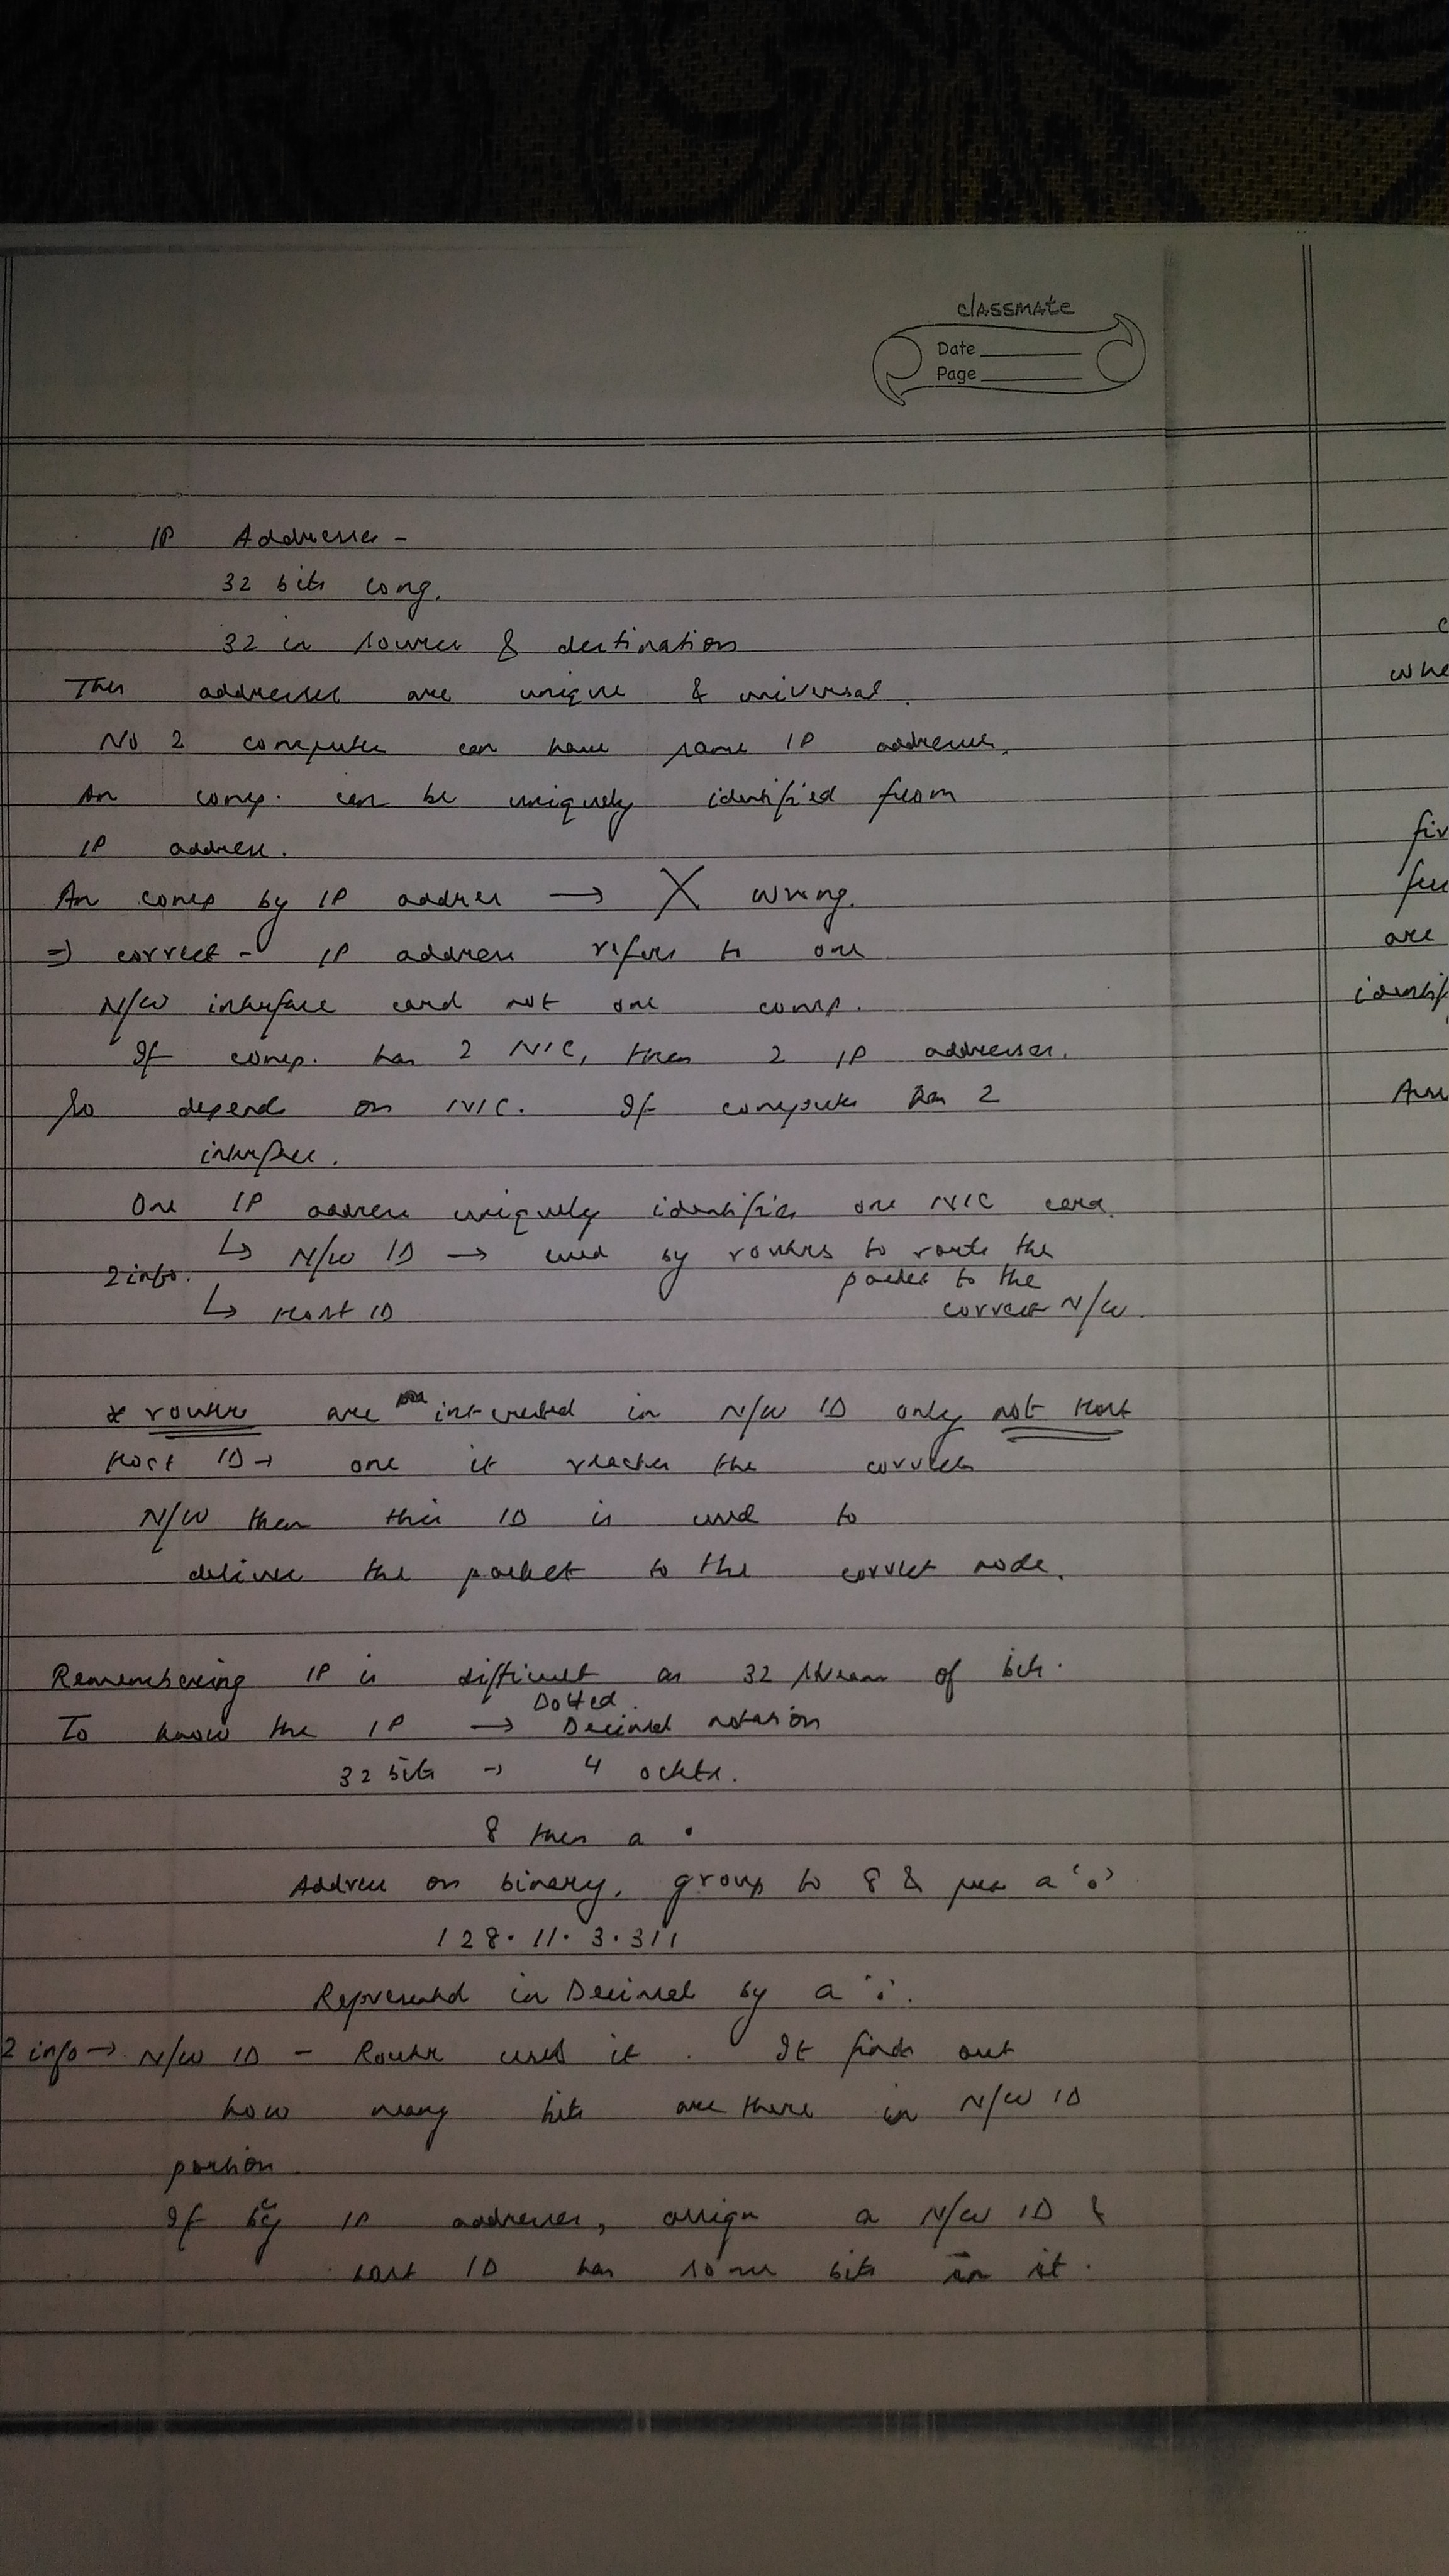 classmate
Date
Page
IP Addresses -
32 bits long.
32 in source & destination
These addresses are unique & universal.
No 2 computer can have same IP address.
An comp. can be uniquely identified from
IP address.
An comp by IP address → X wrong.
⇒ correct - IP address refers to one
N/W interface card not one comp.
If comp. has 2 NIC, then 2 IP addresses.
So depend on NIC. If computer has 2
interface.
One IP address uniquely identifies one NIC card.
↳ N/W ID → used by routers to route the
2 info. packet to the
↳ Host ID correct N/W.
* router are interested in N/W ID only not Host
Host ID → once it reaches the correct
N/W then this ID is used to
deliver the packet to the correct node.
Remembering IP is difficult as 32 stream of bits.
To know the IP → Dotted Decimal notation
32 bits → 4 octets.
8 then a •
Address on binary, group to 8 & put a '.'
128.11.3.311
Represented in Decimal by a '.'.
2 info → N/W ID - Router uses it. It finds out
how many bits are there in N/W ID
portion.
If by IP addresses, assign a N/W ID &
host ID has some bits in it.
whe
fir
are
identif